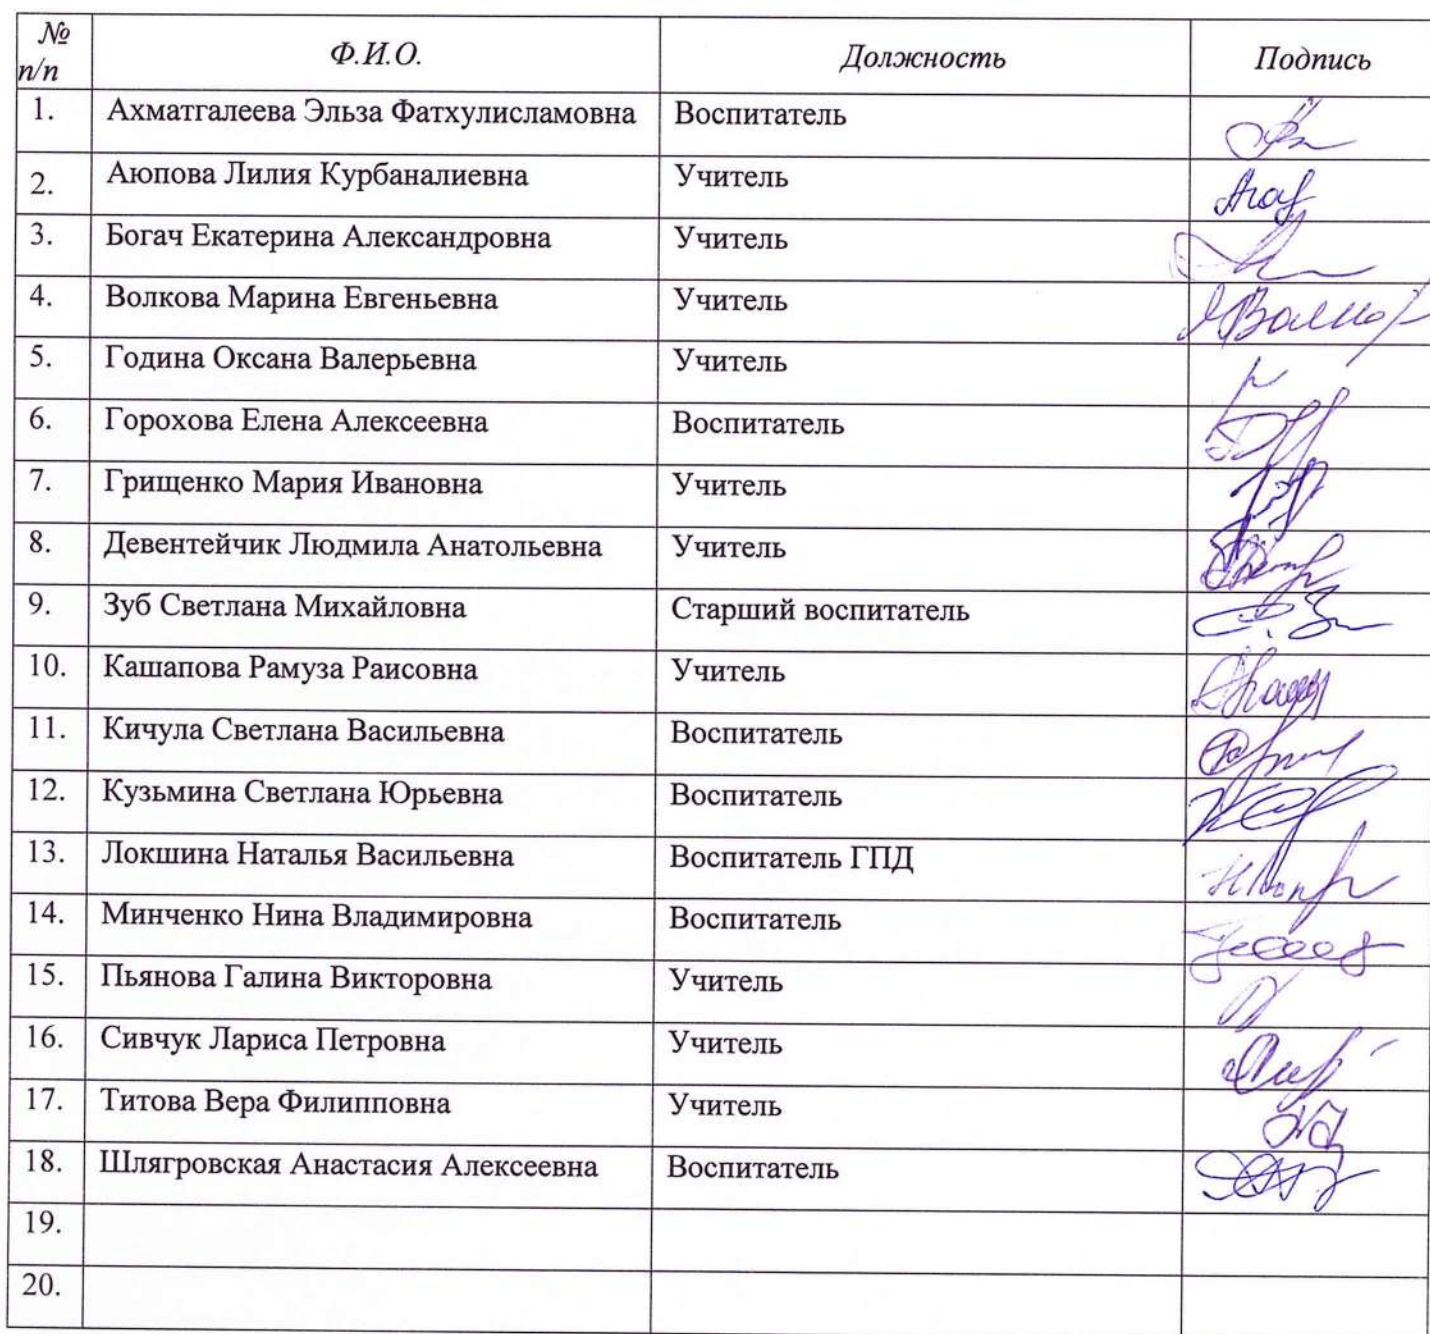 № п/п Ф.И.О. Должность Подпись
1. Ахматгалеева Эльза Фатхулисламовна Воспитатель
2. Аюпова Лилия Курбаналиевна Учитель
3. Богач Екатерина Александровна Учитель
4. Волкова Марина Евгеньевна Учитель
5. Година Оксана Валерьевна Учитель
6. Горохова Елена Алексеевна Воспитатель
7. Грищенко Мария Ивановна Учитель
8. Девентейчик Людмила Анатольевна Учитель
9. Зуб Светлана Михайловна Старший воспитатель
10. Кашапова Рамуза Раисовна Учитель
11. Кичула Светлана Васильевна Воспитатель
12. Кузьмина Светлана Юрьевна Воспитатель
13. Локшина Наталья Васильевна Воспитатель ГПД
14. Минченко Нина Владимировна Воспитатель
15. Пьянова Галина Викторовна Учитель
16. Сивчук Лариса Петровна Учитель
17. Титова Вера Филипповна Учитель
18. Шлягровская Анастасия Алексеевна Воспитатель
19.
20.